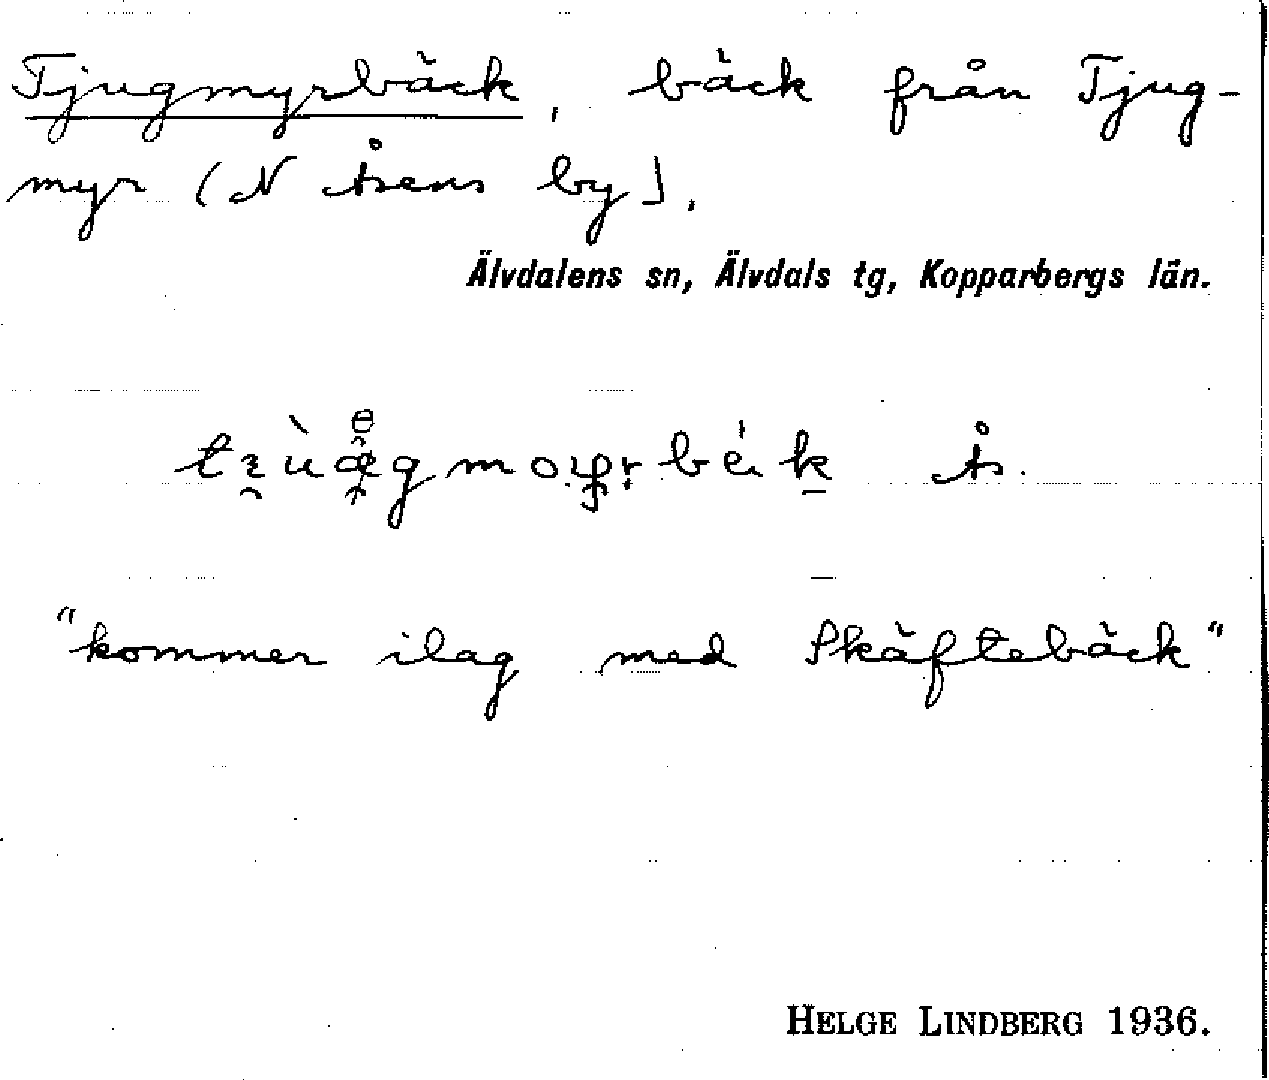 Tjugmyrbäck, bäck från Tjug-
myr (N Åsens by).
Älvdalens sn, Älvdals tg, Kopparbergs län.
Ås.
"kommer ilag med Skäftebäck"
HELGE LINDBERG 1936.